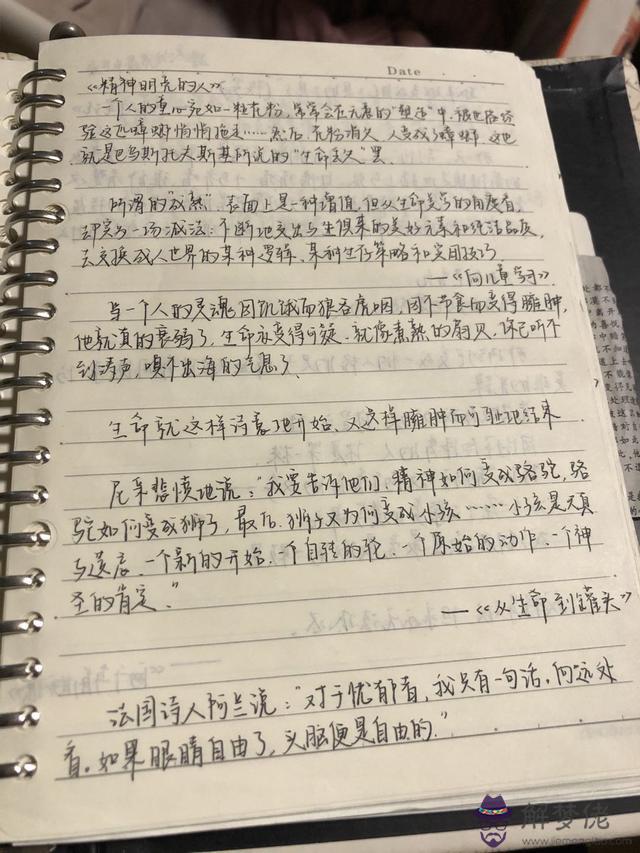 Date
《精神明亮的人》
一个人的童心宛如一粒花粉，常常会在无意的"塑造"中，被世俗经
验这匹蟑螂悄悄拖走……然后，花粉消失，人变成了蟑螂。这也
就是巴乌斯托夫斯基所说的"生命丢失"罢。
所谓的"成熟"，表面上是一种增值，但从生命美学的角度看，
却实为一场减法：不断地交出与生俱来的美好元素和纯洁品质，
去交换成人世界的某种逻辑、某种生存策略和实用技巧。
——《向儿童学习》
当一个人的灵魂因饥饿而狼吞虎咽，因不节食而变得臃肿，
他就真的衰弱了，生命亦变得可疑。就像煮熟的扇贝，你已听不
到涛声，嗅不出海的气息了。
生命就这样诗意地开始，又这样臃肿而可耻地结束
尼采悲愤地说："我要告诉他们，精神如何变成骆驼，骆
驼如何变成狮子，最后，狮子又为何变成小孩……小孩是天真
与遗忘，一个新的开始，一个自转的轮，一个原始的动作，一个神
圣的肯定。"
——《从生命到罐头》
法国诗人阿兰说："对于忧郁者，我只有一句话，向远处
看。如果眼睛自由了，头脑便是自由的."
解梦佬